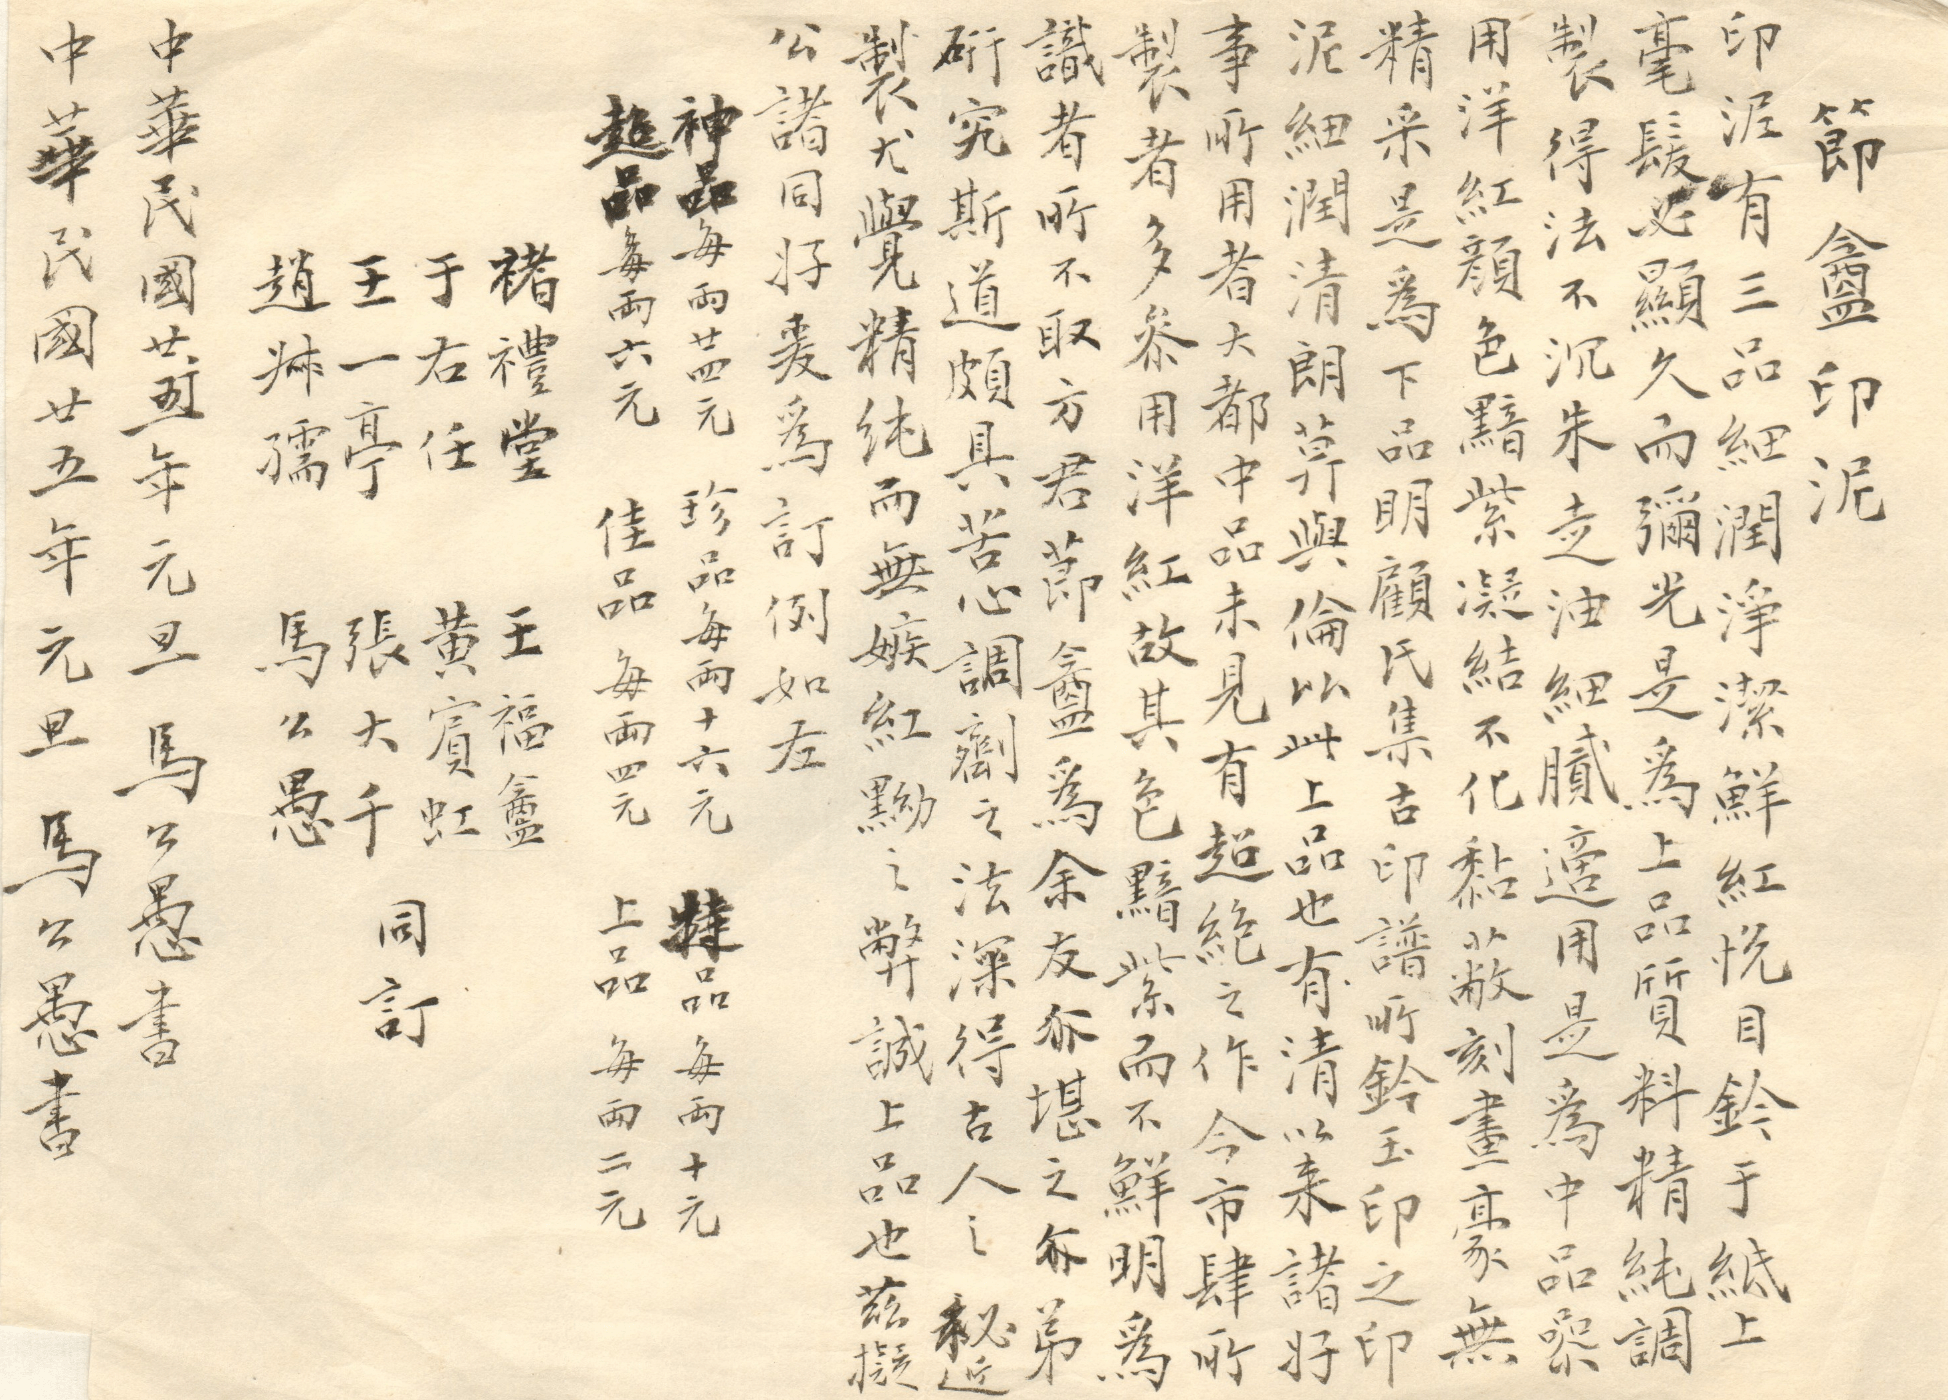 節盦印泥
印泥有三品細潤淨潔鮮紅悅目鈐于紙上
毫髮必顯久而彌光是爲上品質料精純調
製得法不沉朱走油細膩適用是爲中品槼
用洋紅顏色黯紫凝結不化黏蔽刻畫豪無
精采是爲下品明顧氏集古印譜所鈐玉印之印
泥細潤清朗莫與倫比此上品也有清以來諸好
事所用者大都中品未見有超絶之作今市肆所
製者多叅用洋紅故其色黯紫而不鮮明爲
識者所不取方君節盦爲余友介堪之介弟
研究斯道頗具苦心調劑之法深得古人之秘近
製尤覺精純而無嫉紅黝之弊誠上品也茲擬
公諸同好爰爲訂例如左
神品每兩廿四元 珍品每兩十六元 特品每兩十元
超品每兩六元 佳品每兩四元 上品每兩二元
褚禮堂 王福盦
于右任 黃賓虹
王一亭 張大千 同訂
趙尗孺 馬公愚
中華民國廿五年元旦 馬公愚書
中華民國廿五年元旦 馬公愚書